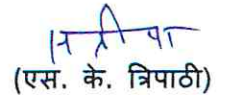 (एस. के. त्रिपाठी)